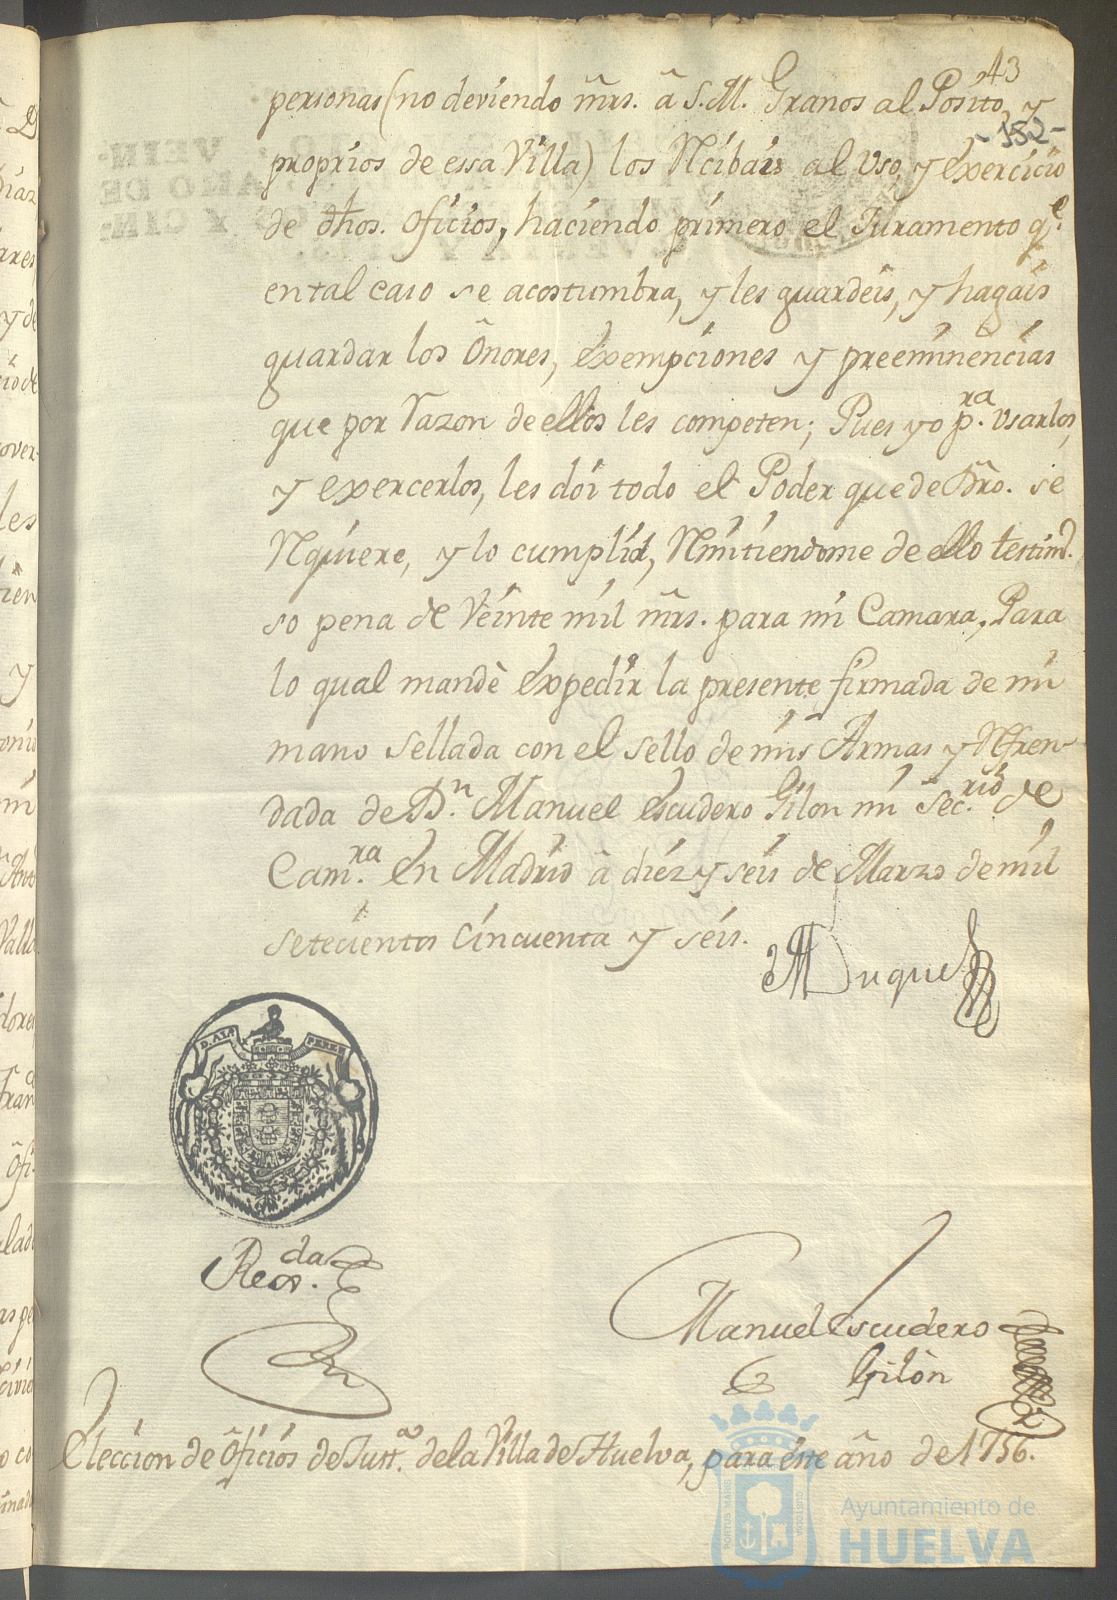 43
personas (no deviendo mrs. â S.M. Granos al Posito, y
-152-
proprios de essa Villa) los Rcibais al Uso, y exercicio
de dhos. Oficios, haciendo primero el Juramento q.e
en tal caso se acostumbra, y les guardeis, y hagais
guardar los Onores, exempciones y preeminencias
que por razon de ellos les competen; Pues yo p.ra usarlos,
y exercerlos, les doi todo el Poder que de Dro. se
Rquiere, y lo cumplid, Rmitiendome de ello testim.
so pena de Veinte mil mrs. para mi Camara, Para
lo qual mandè expedir la presente firmada de mi
mano sellada con el sello de mis Armas y Rfren
dada de D.n Manuel Escudero Gilon mi Sec.rio de
Cam.ra En Madrid à diez y seis de Marzo de mil
setecientos Cincuenta y seis.
Duque
D. ALA PEREZ
Reg.da
Manuel Escudero
Gilòn
Eleccion de Oficios de Just.a de la Villa de Huelva, para este año de 1756.
PORTUS MARIS
CUSTODIA
Ayuntamiento de
HUELVA